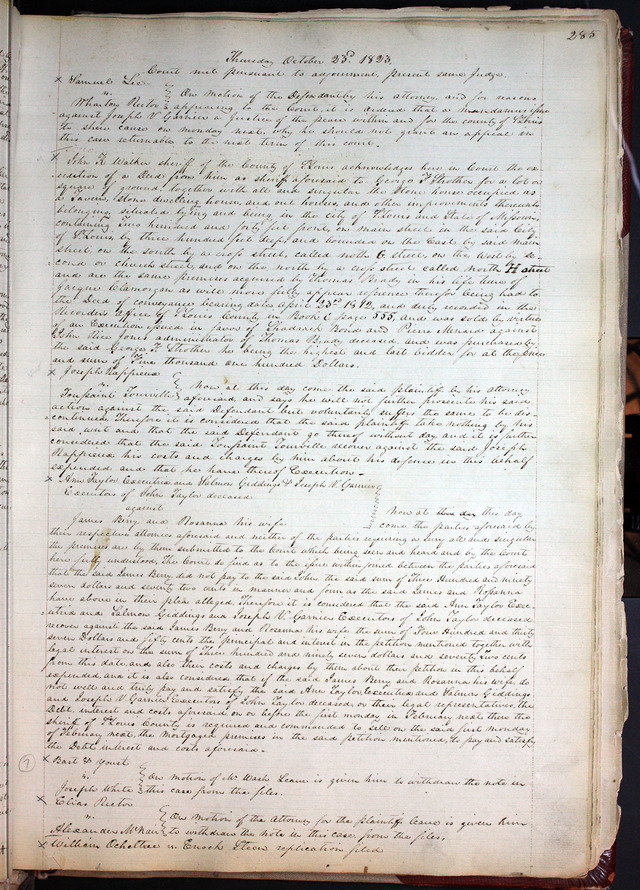 285
Thursday October 23d. 1823.
Court met pursuant to adjournment present same Judge
Samuel
vs.
On motion of the Defendant by his attorney, and for reasons
Wharton Rector appearing to the Court, it is ordered that a mandamus issue
against Joseph V. Garnier a justice of the peace within and for the county of St Louis
to shew cause on monday next, why he should not grant an appeal in
this case returnable to the next term of this court.
John K Walker sheriff of the County of St Louis acknowledges here in Court the ex-
ecution of a Deed from him as sheriff aforesaid to George F Strother for a lot or
square of ground, together with all and singular the Stone house, occupied as
a Tavern, stone dwelling house, and out houses, and other improvements thereunto
belonging situated lying and being in the city of St Louis and State of Missouri
containing Two hundred and forty feet front, on main street in the said City
of St Louis by three hundred feet deep and bounded on the East by said main
street on the south by a cross street, called north G street, on the West by se-
cond or church street, and on the north by a cross street called North H street
and are the same premises acquired by Thomas Brady in his life time of
Jacques Clamorgan as will more fully appear reference therefor being had to
the Deed of conveyance bearing date April 23rd 1812, and duly recorded in the
Recorder's office of St Louis County in Book C page 555, and was sold by virtue
of an Execution issued in favor of Shadrach Bond and Pierre Menard against
John Rice Jones administrator of Thomas Brady deceased, and was purchased by
the said George F Strother he being the highest and last bidder for at the price
and sum of Five thousand one hundred Dollars.
Joseph Rapprieux
vs.
Now at this day come the said plaintiff by his attorney
Toussaint Tourville aforesaid, and says he will not further prosecute his said
action against the said Defendant but voluntarily suffers the same to be dis-
continued Therefore it is considered that the said plaintiff take nothing by his
said writ and that the said Defendant go thereof without day, and it is further
considered that the said Toussaint Tourville recover against the said Joseph
Rapprieux his costs and charges by him about his defence in this behalf
expended and that he have thereof Execution.
Ann Taylor Executrix and Salmon Giddings & Joseph V. Garnier
Executors of John Taylor deceased
against
Now at this day
James Berry and Rosanna his wife
come the parties aforesaid by
their respective attornies aforesaid and neither of the parties requiring a Jury all and singular
the premises are by them submitted to the Court which being seen and heard and by the Court
here fully understood, The Court do find as to the issue within joined between the parties aforesaid
that the said James Berry did not pay to the said John the said sum of Three Hundred and ninety
seven dollars and seventy two cents in manner and form as the said James and Rosanna
have above in their plea alleged. Therefore it is considered that the said Ann Taylor Exe-
cutrix and Salmon Giddings and Joseph V. Garnier Executors of John Taylor deceased
recover against the said James Berry and Rosanna his wife the sum of Four Hundred and thirty
seven Dollars and fifty cents the principal and interest in the petition mentioned together with
legal interest on the sum of Three hundred and ninety seven dollars and seventy Two cents
from this date, and also their costs and charges by them about their petition in this behalf
expended, and it is also considered that if the said James Berry and Rosanna his wife do
not well and truly pay and satisfy the said Ann Taylor, Executrix and Salmon Giddings
and Joseph V Garnier Executors of John Taylor deceased, or their legal representatives, the
Debt, interest and costs aforesaid on or before the first monday in February next, then the
sheriff of St Louis County is required and commanded to sell on the said first monday
of February next, the Mortgaged premises in the said petition mentioned, to pay and satisfy
the Debt interest and costs aforesaid.
vs.
On motion of Mr Wash Leave is given him to withdraw the note in
Joseph White this case from the files.
Elias Rector
vs.
On motion of the Attorney for the plaintiff leave is given him
Alexander McNair to withdraw the note in this case from the files.
William Ocheltree vs. Enoch Steen replication filed